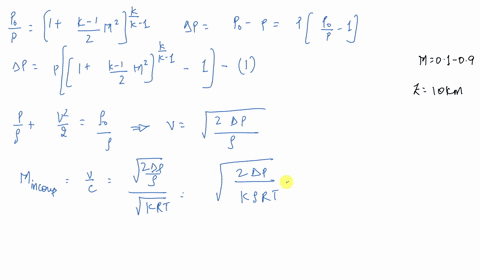 P₀/P = [1 + (k-1)/2 M²]^(k/k-1)    ΔP = P₀ - P = P[P₀/P - 1]
ΔP = P[[1 + (k-1)/2 M²]^(k/k-1) - 1] - (1)
M=0.1-0.9
Z=10km
P/ρ + V²/2 = P₀/ρ ⇒ V = √(2 ΔP/ρ)
M_incomp = V/C = √(2ΔP/ρ)/√(KRT) = √(2 ΔP/KρRT)